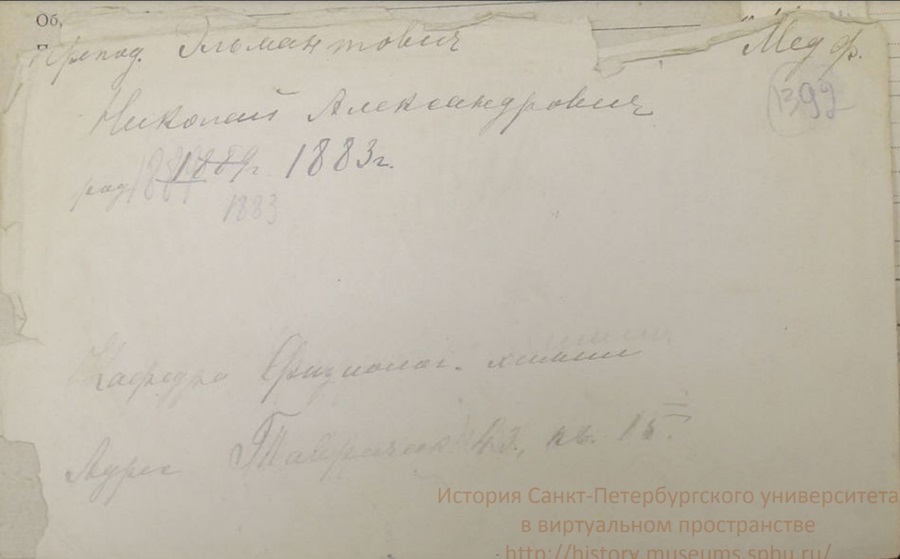 Об,
Препод. Эльмантович Мед ф.
Николай Александрович
1392
род 1889г 1883г.
1883
Кафедра Физиолог. химии
Адрес Таврическ 43, кв. 15.
История Санкт-Петербургского университета
в виртуальном пространстве
http://history.museums.spbu.ru/